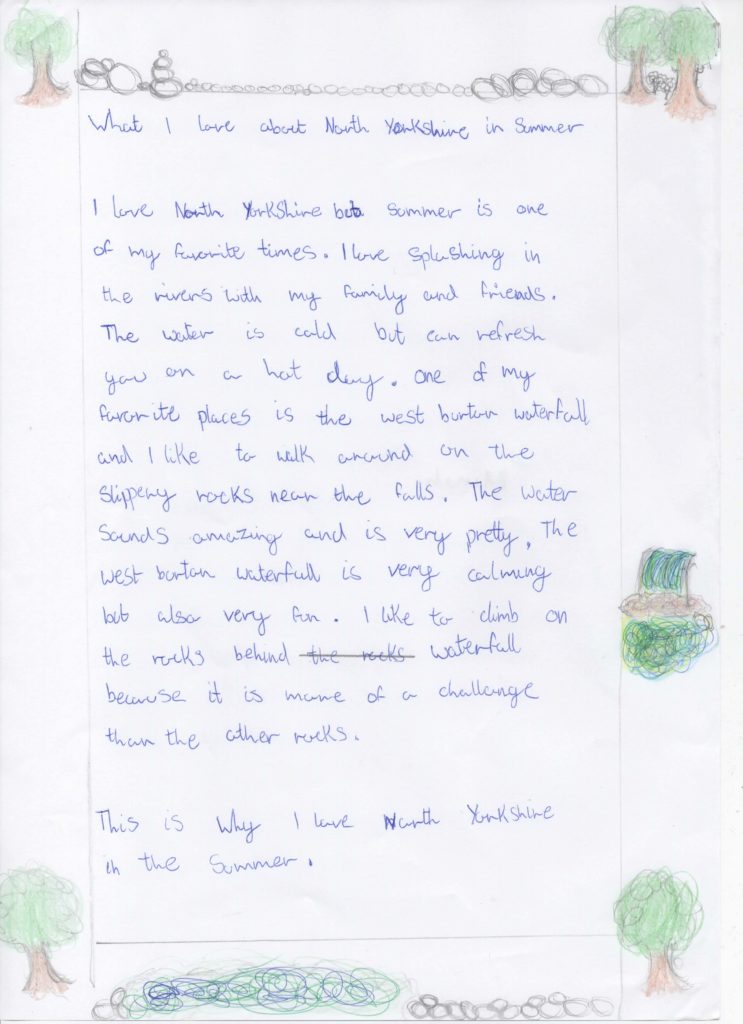 What I love about North Yorkshire in Summer
I love North Yorkshire but summer is one
of my favorite times. I love splashing in
the rivers with my family and friends.
The water is cold but can refresh
you on a hot day. One of my
favorite places is the west burton waterfall
and I like to walk around on the
slippery rocks near the falls. The water
sounds amazing and is very pretty. The
west burton waterfall is very calming
but also very fun. I like to climb on
the rocks behind the rocks waterfall
because it is more of a challange
than the other rocks.
This is Why I love North Yorkshire
in the Summer.